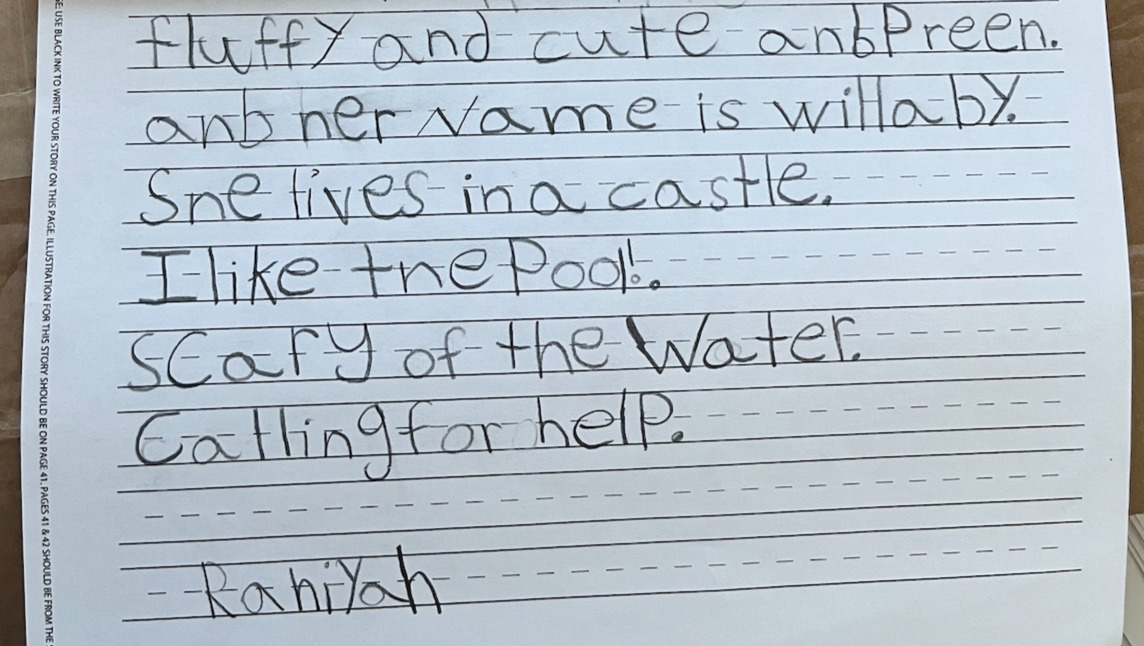 fluffy and cute anb Preen.
anb her Name is willaby.
Sne lives in a castle.
I like tne Pool!.
Scary of the Water.
Calling for help.
Rahiyah
E: USE BLACK INK TO WRITE YOUR STORY ON THIS PAGE. ILLUSTRATION FOR THIS STORY SHOULD BE ON PAGE 41. PAGES 41 & 42 SHOULD BE FROM THE S